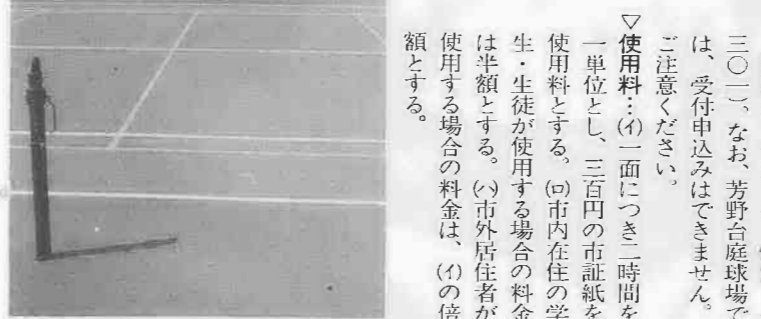 三〇一）。なお、芳野台庭球場で
は、受付申込みはできません。
ご注意ください。
▽使用料…(イ)一面につき二時間を
一単位とし、三百円の市証紙を
使用料とする。(ロ)市内在住の学
生・生徒が使用する場合の料金
は半額とする。(ハ)市外居住者が
使用する場合の料金は、(イ)の倍
額とする。